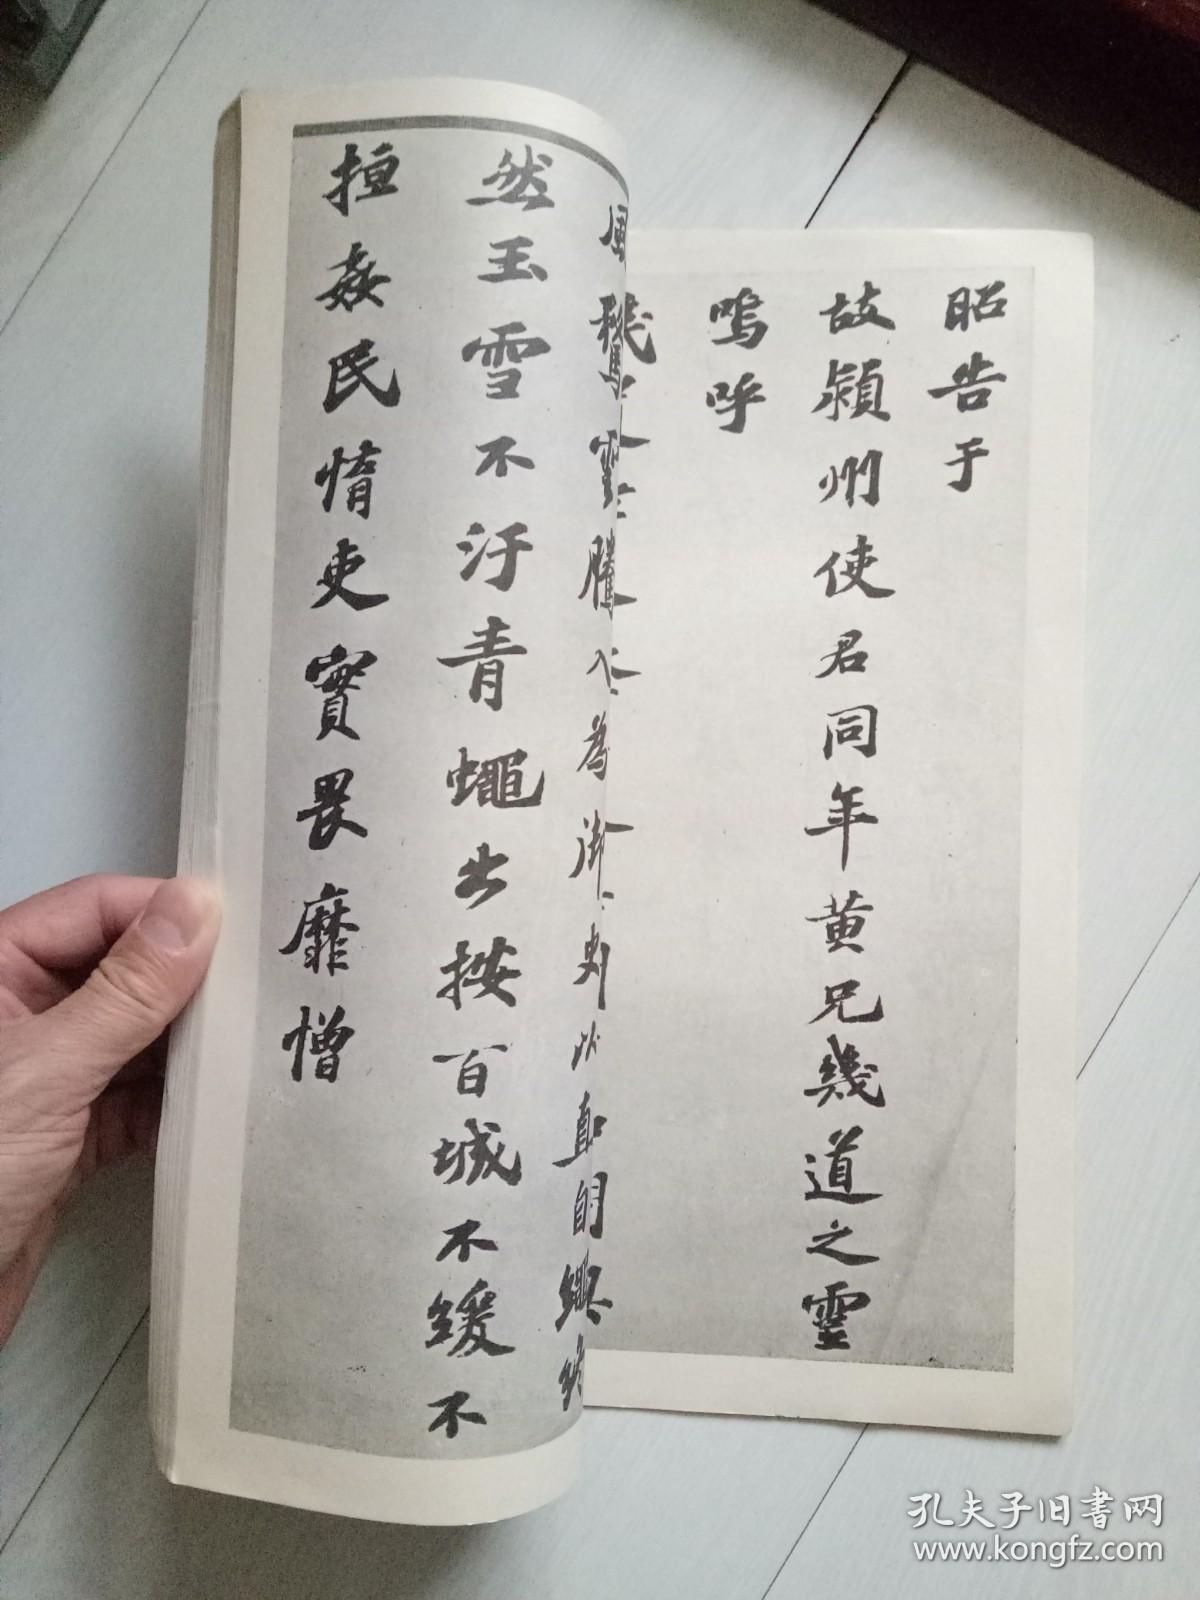 昭告于
故潁州使君同年黃兄幾道之靈
嗚呼
入為御史以直自繩
然玉雪不汙青蠅出按百城不緩不
搄姦民惰吏實畏靡憎
孔夫子旧书网
www.kongfz.com